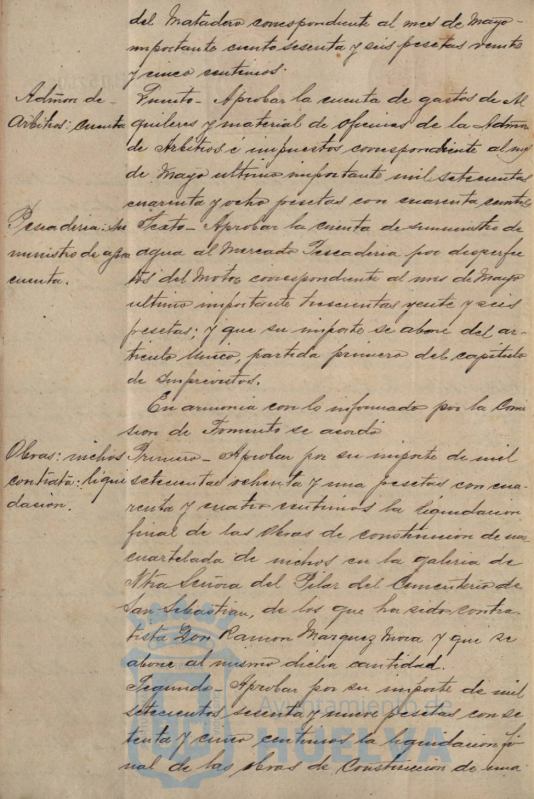 del Matadero correspondiente al mes de Mayo
importante ciento sesenta y seis pesetas veinte
y cinco centimos.
Admon de
Arbitros: cuenta
Quinto - Aprobar la cuenta de gastos de Al
quileres y material de oficinas de la Admon
de Arbitros é impuestos correspondiente al mes
de Mayo ultimo importante mil setecientas
cuarenta y ocho pesetas con cuarenta cents
Pescaderia: Su
ministro de agua
cuenta.
Sexto - Aprobar la cuenta de suministro de
agua al Mercado Pescaderia por desperfec
tos del Motor correspondiente al mes de Mayo
ultimo importante trescientas veinte y seis
pesetas; y que su importe se abone del ar-
ticulo Unico, partida primera del capitulo
de Imprevistos.
En armonia con lo informado por la Comi
sion de Fomento se acordó
Obras: nichos
contrata: liqui
dacion.
Primero - Aprobar por su importe de mil
setecientas ochenta y una pesetas con cua
renta y cuatro centimos la liquidacion
final de las obras de construccion de una
cuartelada de nichos en la galeria de
Ntra Señora del Pilar del Cementerio de
San Sebastian, de los que ha sido contra-
tista Don Ramon Marquez Mora y que se
abone al mismo dicha cantidad.
Segundo - Aprobar por su importe de mil
setecientos sesenta y nueve pesetas con se
tenta y cinco centimos la liquidacion fi
nal de las obras de Construccion de una
Ayuntamiento de
HUELVA